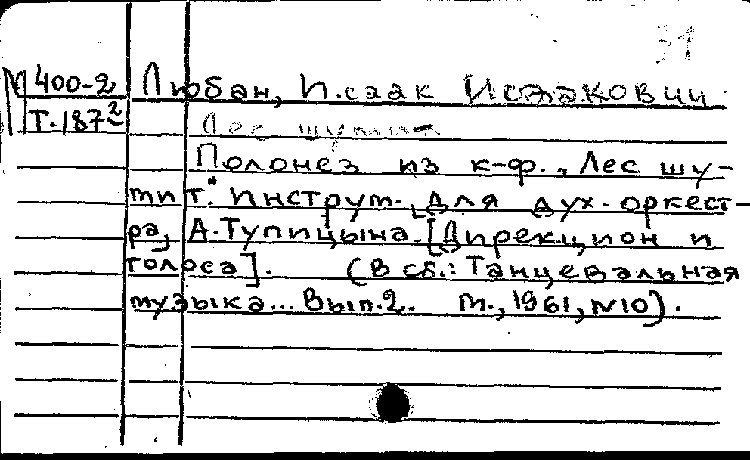 31
М 400-2 Любан, Исаак Исаакович
Т.187²
Лес шумит
Полонез из к-ф. „Лес шу-
мит". Инструм. для дух. оркест-
ра, А. Тупицына. [Дирекцион и
голоса]. (В сб.: Танцевальная
музыка... Вып.2. М., 1961, №10).